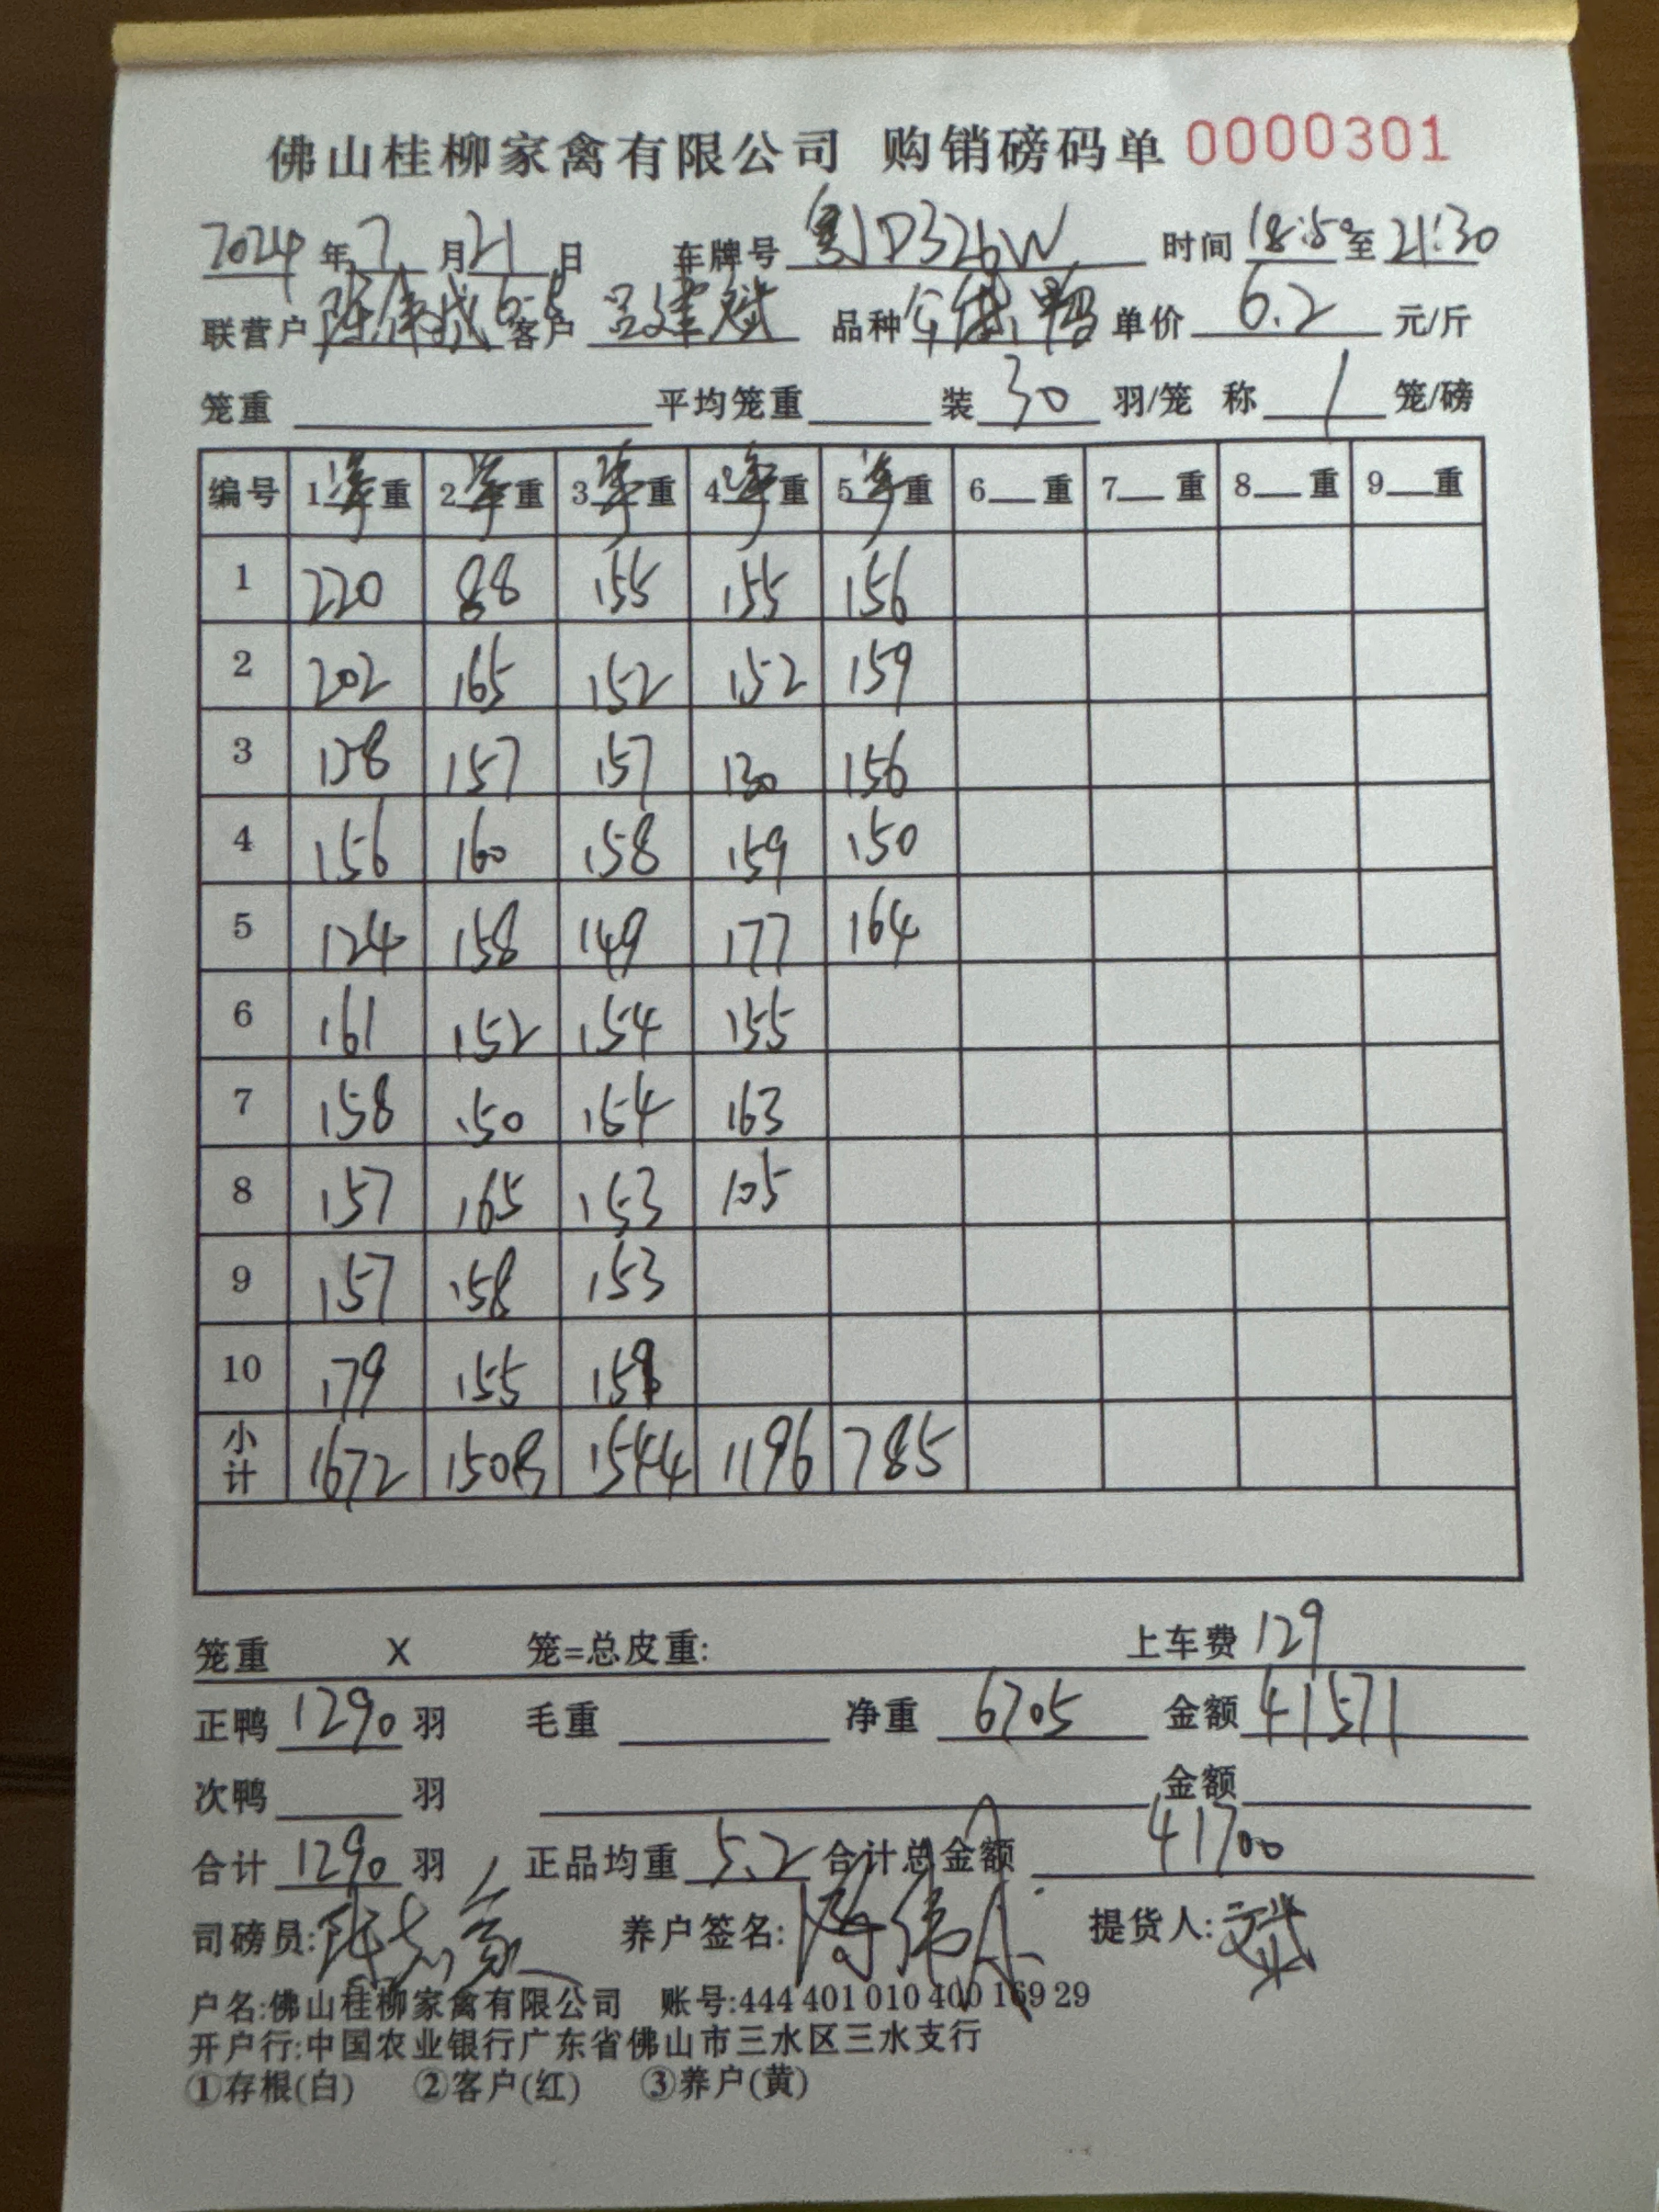 佛山桂柳家禽有限公司 购销磅码单 0000301
2024 年 7 月 21 日 车牌号 粤JD326W 时间 18:50 至 21:30
联营户 陈伟成 6-8 客户 吕建斌 品种 鸭 单价 6.2 元/斤
笼重 平均笼重 装 30 羽/笼 称 1 笼/磅
编号 1 净 重 2 净 重 3 净 重 4 净 重 5 净 重 6 重 7 重 8 重 9 重
1 220 88 155 155 156
2 202 165 152 152 159
3 158 157 157 130 156
4 156 160 158 159 150
5 124 158 149 177 164
6 161 152 154 155
7 158 150 154 163
8 157 165 153 105
9 157 158 153
10 179 155 159
小计 1672 1508 1544 1196 785
笼重 X 笼=总皮重: 上车费 129
正鸭 1290 羽 毛重 净重 6705 金额 41571
次鸭 羽 金额
合计 1290 羽 正品均重 5.2 合计总金额 41700
司磅员: 养户签名: 陈伟成 提货人: 斌
户名:佛山桂柳家禽有限公司 账号:444 401 010 400 169 29
开户行:中国农业银行广东省佛山市三水区三水支行
①存根(白) ②客户(红) ③养户(黄)